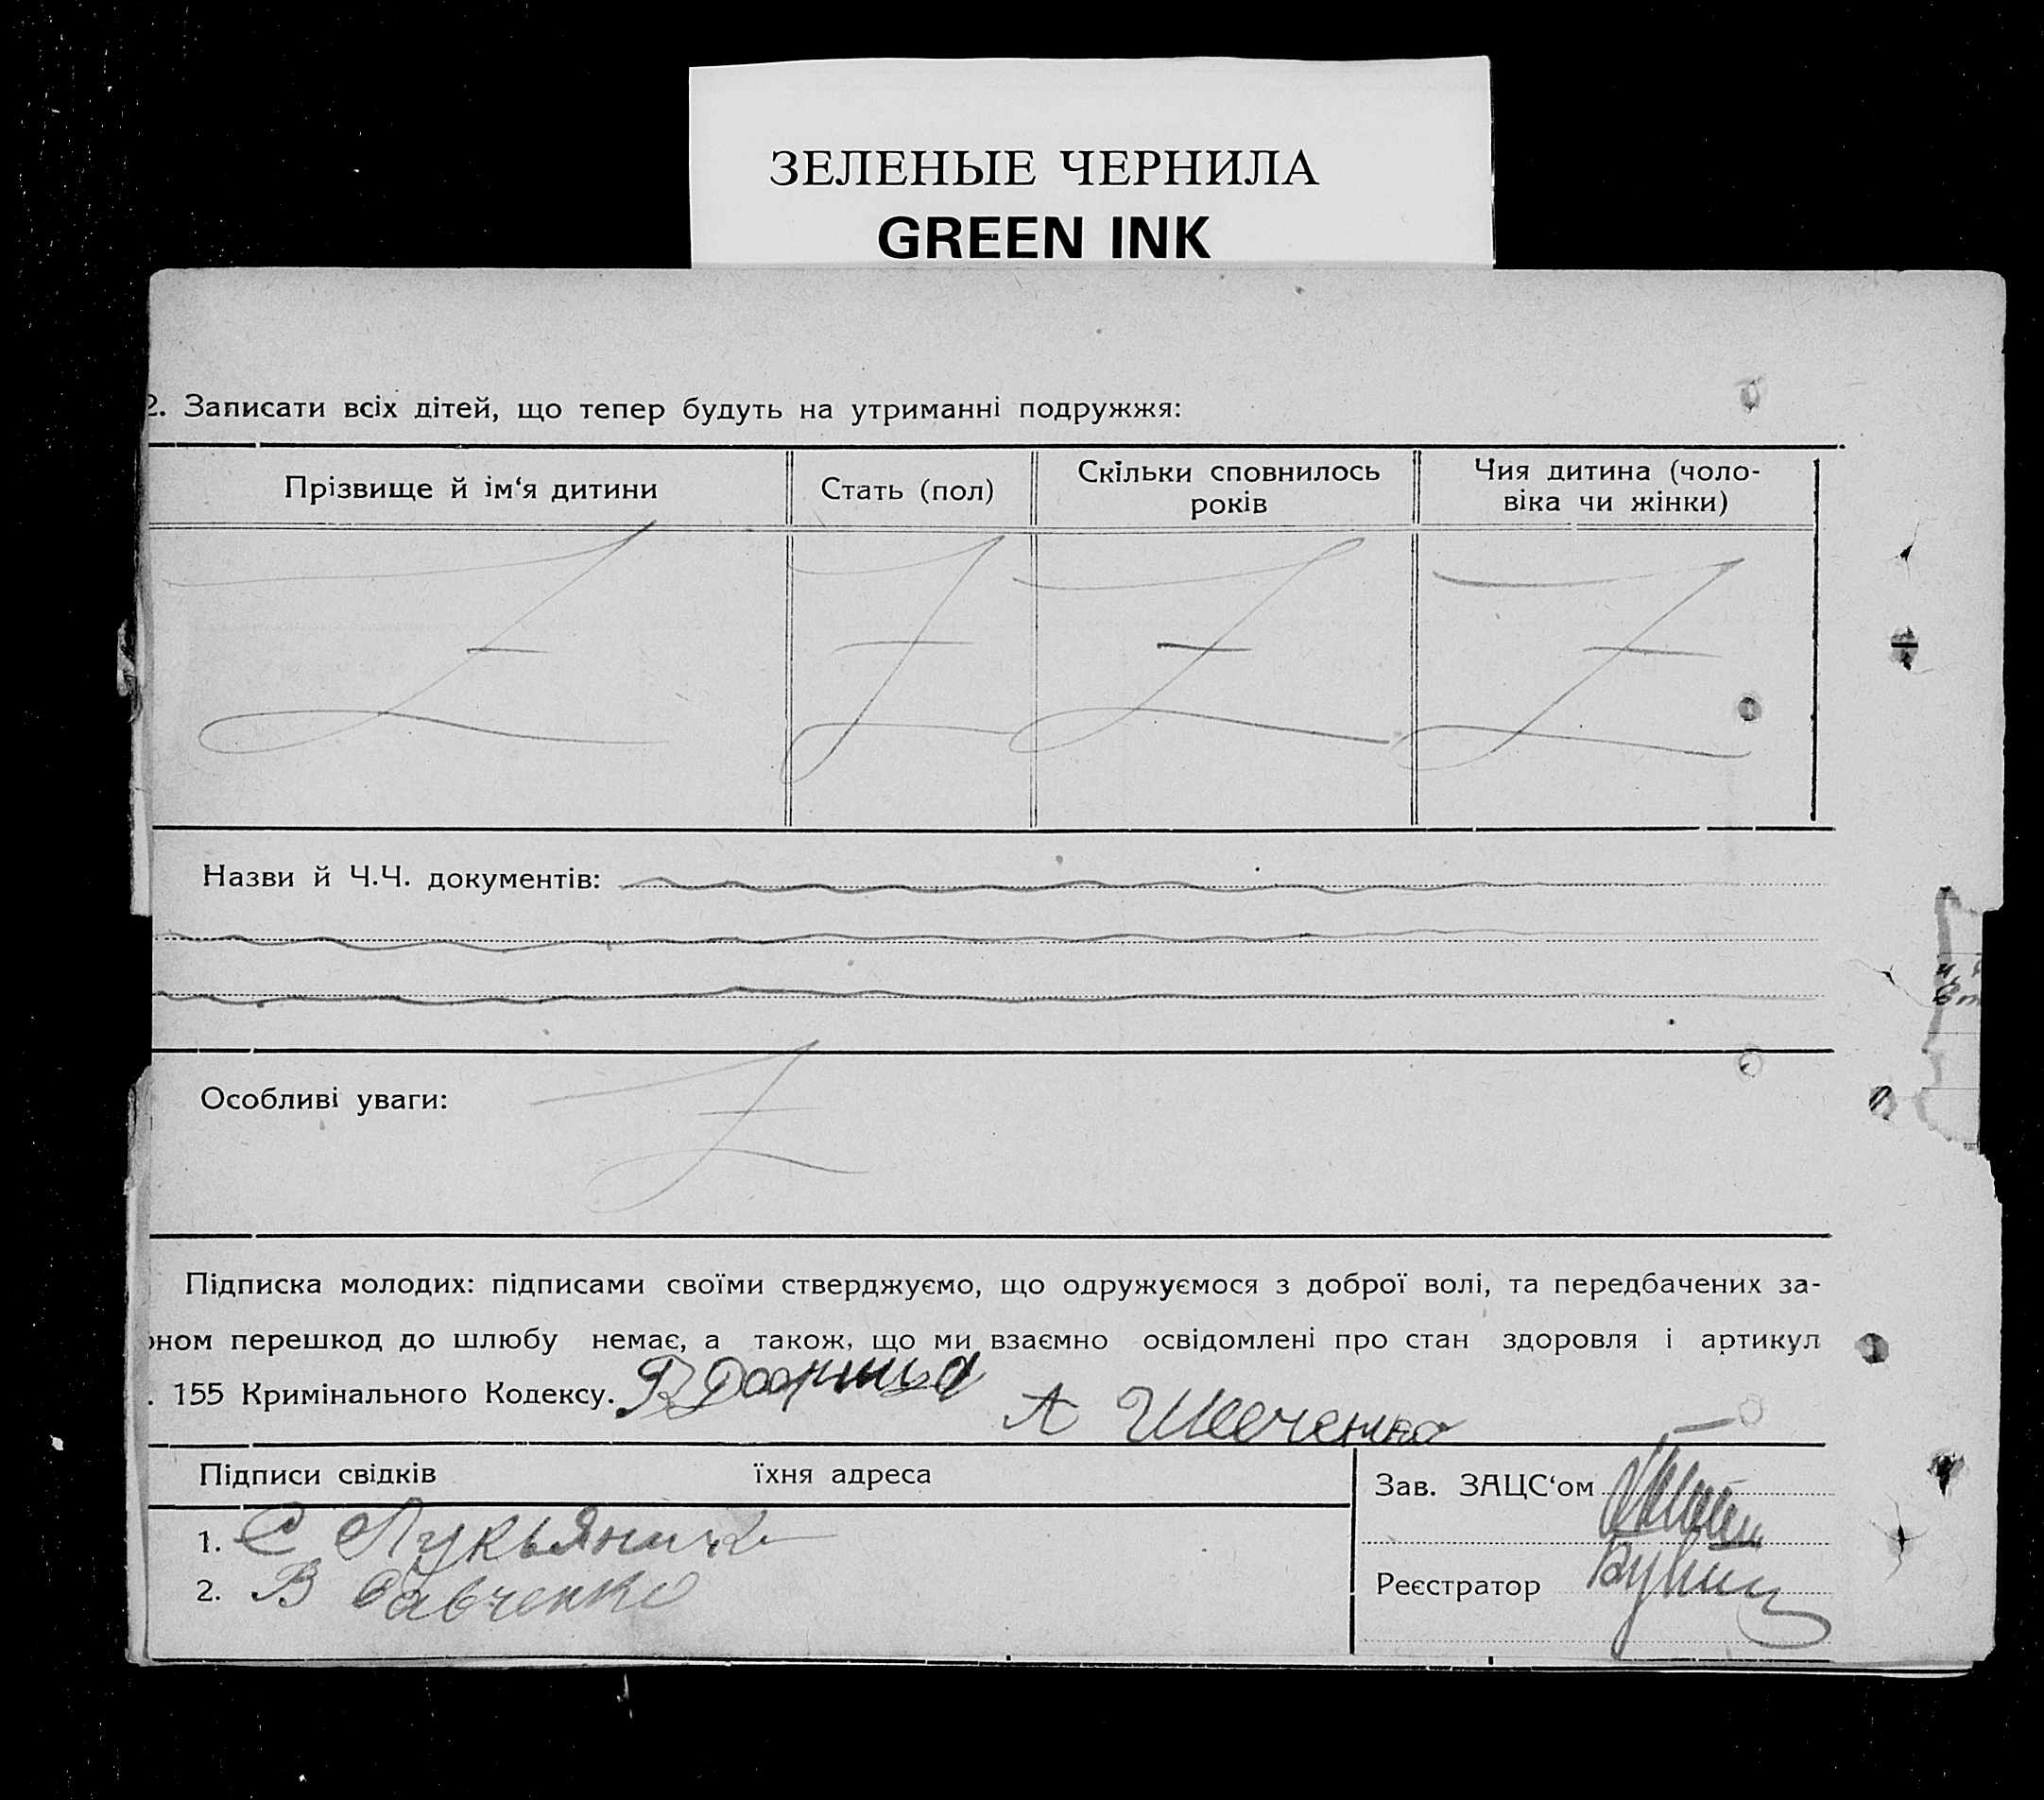 ЗЕЛЕНЫЕ ЧЕРНИЛА
GREEN INK
2. Записати всіх дітей, що тепер будуть на утриманні подружжя:
Прізвище й ім‘я дитини
Стать (пол)
Скільки сповнилось
років
Чия дитина (чоло-
віка чи жінки)
Назви й Ч.Ч. документів:
Особливі уваги:
Підписка молодих: підписами своїми стверджуємо, що одружуємося з доброї волі, та передбачених за-
оном перешкод до шлюбу немає, а також, що ми взаємно освідомлені про стан здоровля і артикул
. 155 Кримінального Кодексу.
А Шевченко
Підписи свідків їхня адреса
1. С
2. В Савченко
Зав. ЗАЦС‘ом
Реєстратор